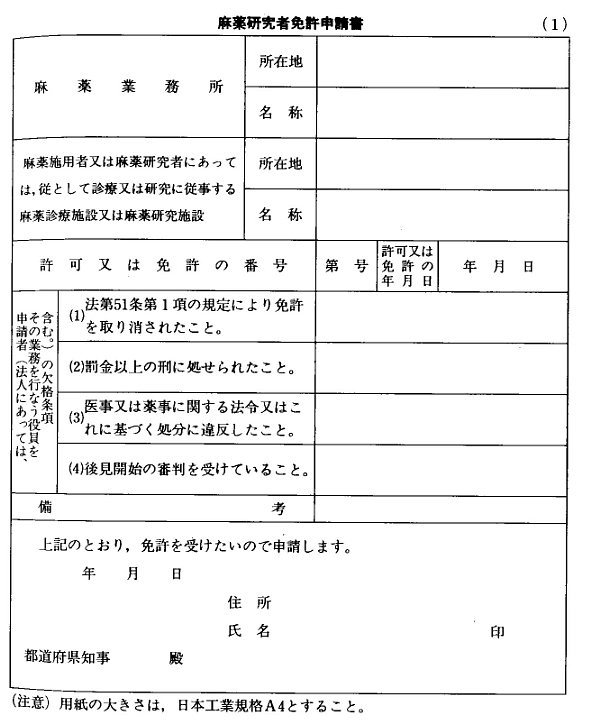 麻薬研究者免許申請書 (1)
麻薬業務所 所在地
名称
麻薬施用者又は麻薬研究者にあって
は,従として診療又は研究に従事する
麻薬診療施設又は麻薬研究施設
所在地
名称
許可又は免許の番号 第 号 許可又は
免許の
年月日
年 月 日
申請者(法人にあっては、
その業務を行なう役員を
含む。)の欠格条項
(1) 法第51条第1項の規定により免許
を取り消されたこと。
(2)罰金以上の刑に処せられたこと。
(3) 医事又は薬事に関する法令又はこ
れに基づく処分に違反したこと。
(4)後見開始の審判を受けていること。
備考
上記のとおり,免許を受けたいので申請します。
年 月 日
住所
氏名 印
都道府県知事 殿
(注意) 用紙の大きさは,日本工業規格A4とすること。